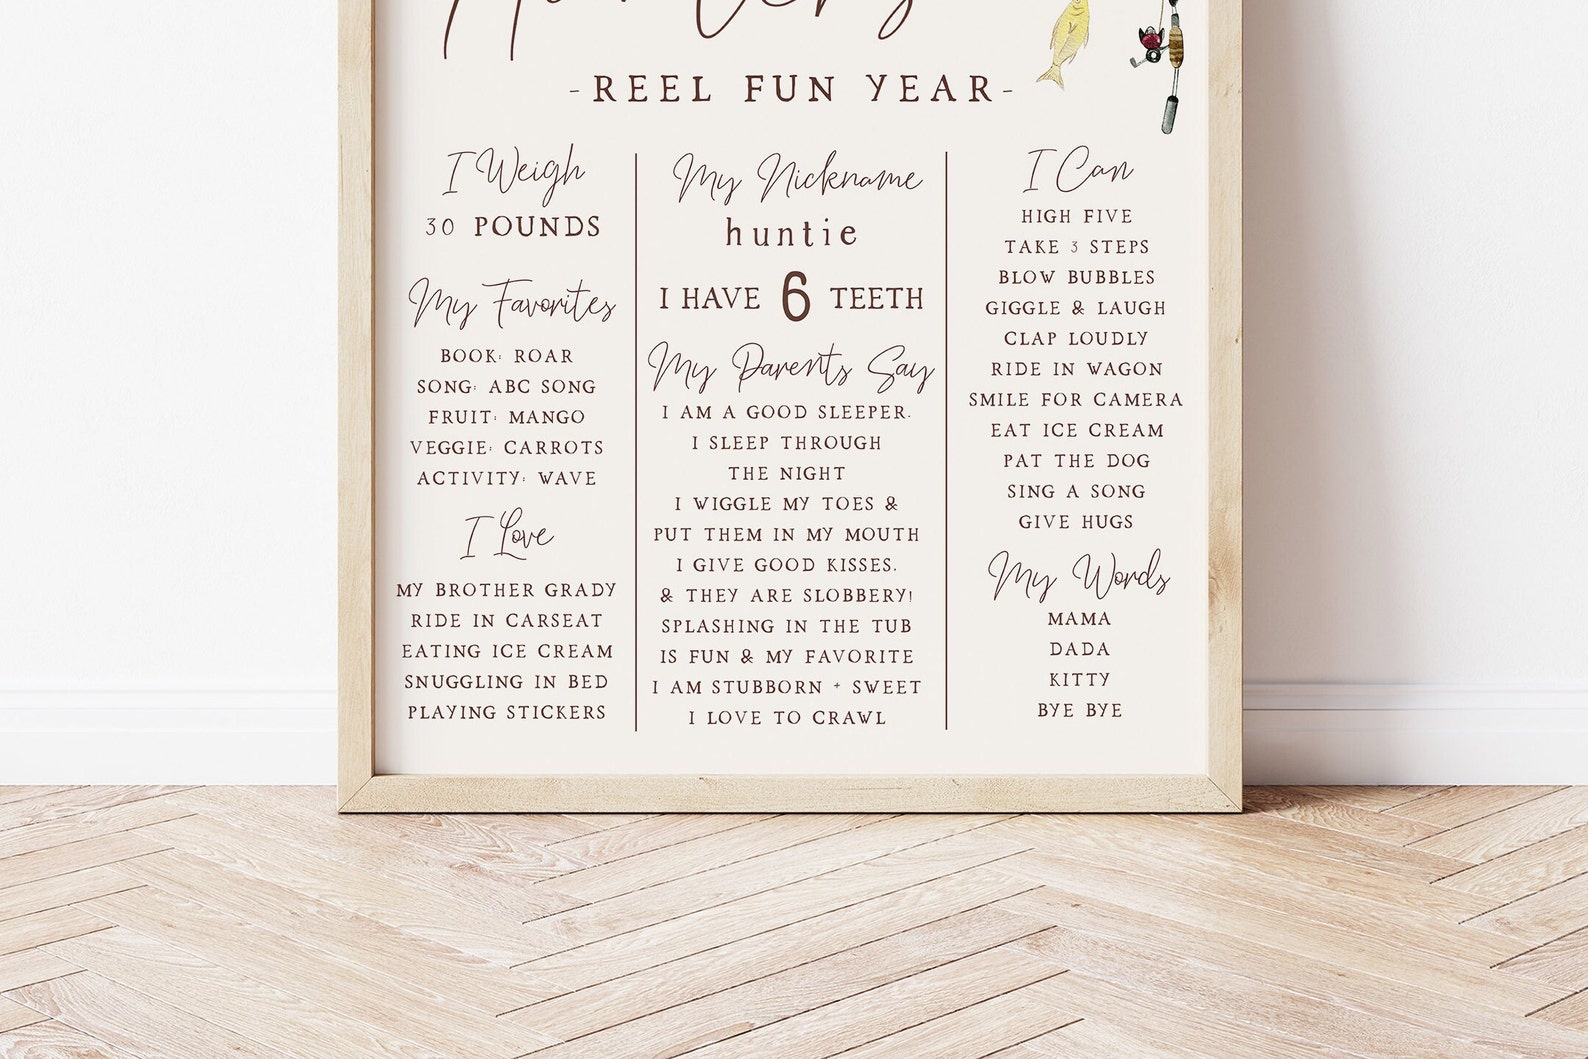 Hunter's
-REEL FUN YEAR-
I Weigh
30 POUNDS
My Favorites
BOOK: ROAR
SONG: ABC SONG
FRUIT: MANGO
VEGGIE: CARROTS
ACTIVITY: WAVE
I Love
MY BROTHER GRADY
RIDE IN CARSEAT
EATING ICE CREAM
SNUGGLING IN BED
PLAYING STICKERS
My Nickname
huntie
I HAVE 6 TEETH
My Parents Say
I AM A GOOD SLEEPER.
I SLEEP THROUGH
THE NIGHT
I WIGGLE MY TOES &
PUT THEM IN MY MOUTH
I GIVE GOOD KISSES.
& THEY ARE SLOBBERY!
SPLASHING IN THE TUB
IS FUN & MY FAVORITE
I AM STUBBORN + SWEET
I LOVE TO CRAWL
I Can
HIGH FIVE
TAKE 3 STEPS
BLOW BUBBLES
GIGGLE & LAUGH
CLAP LOUDLY
RIDE IN WAGON
SMILE FOR CAMERA
EAT ICE CREAM
PAT THE DOG
SING A SONG
GIVE HUGS
My Words
MAMA
DADA
KITTY
BYE BYE